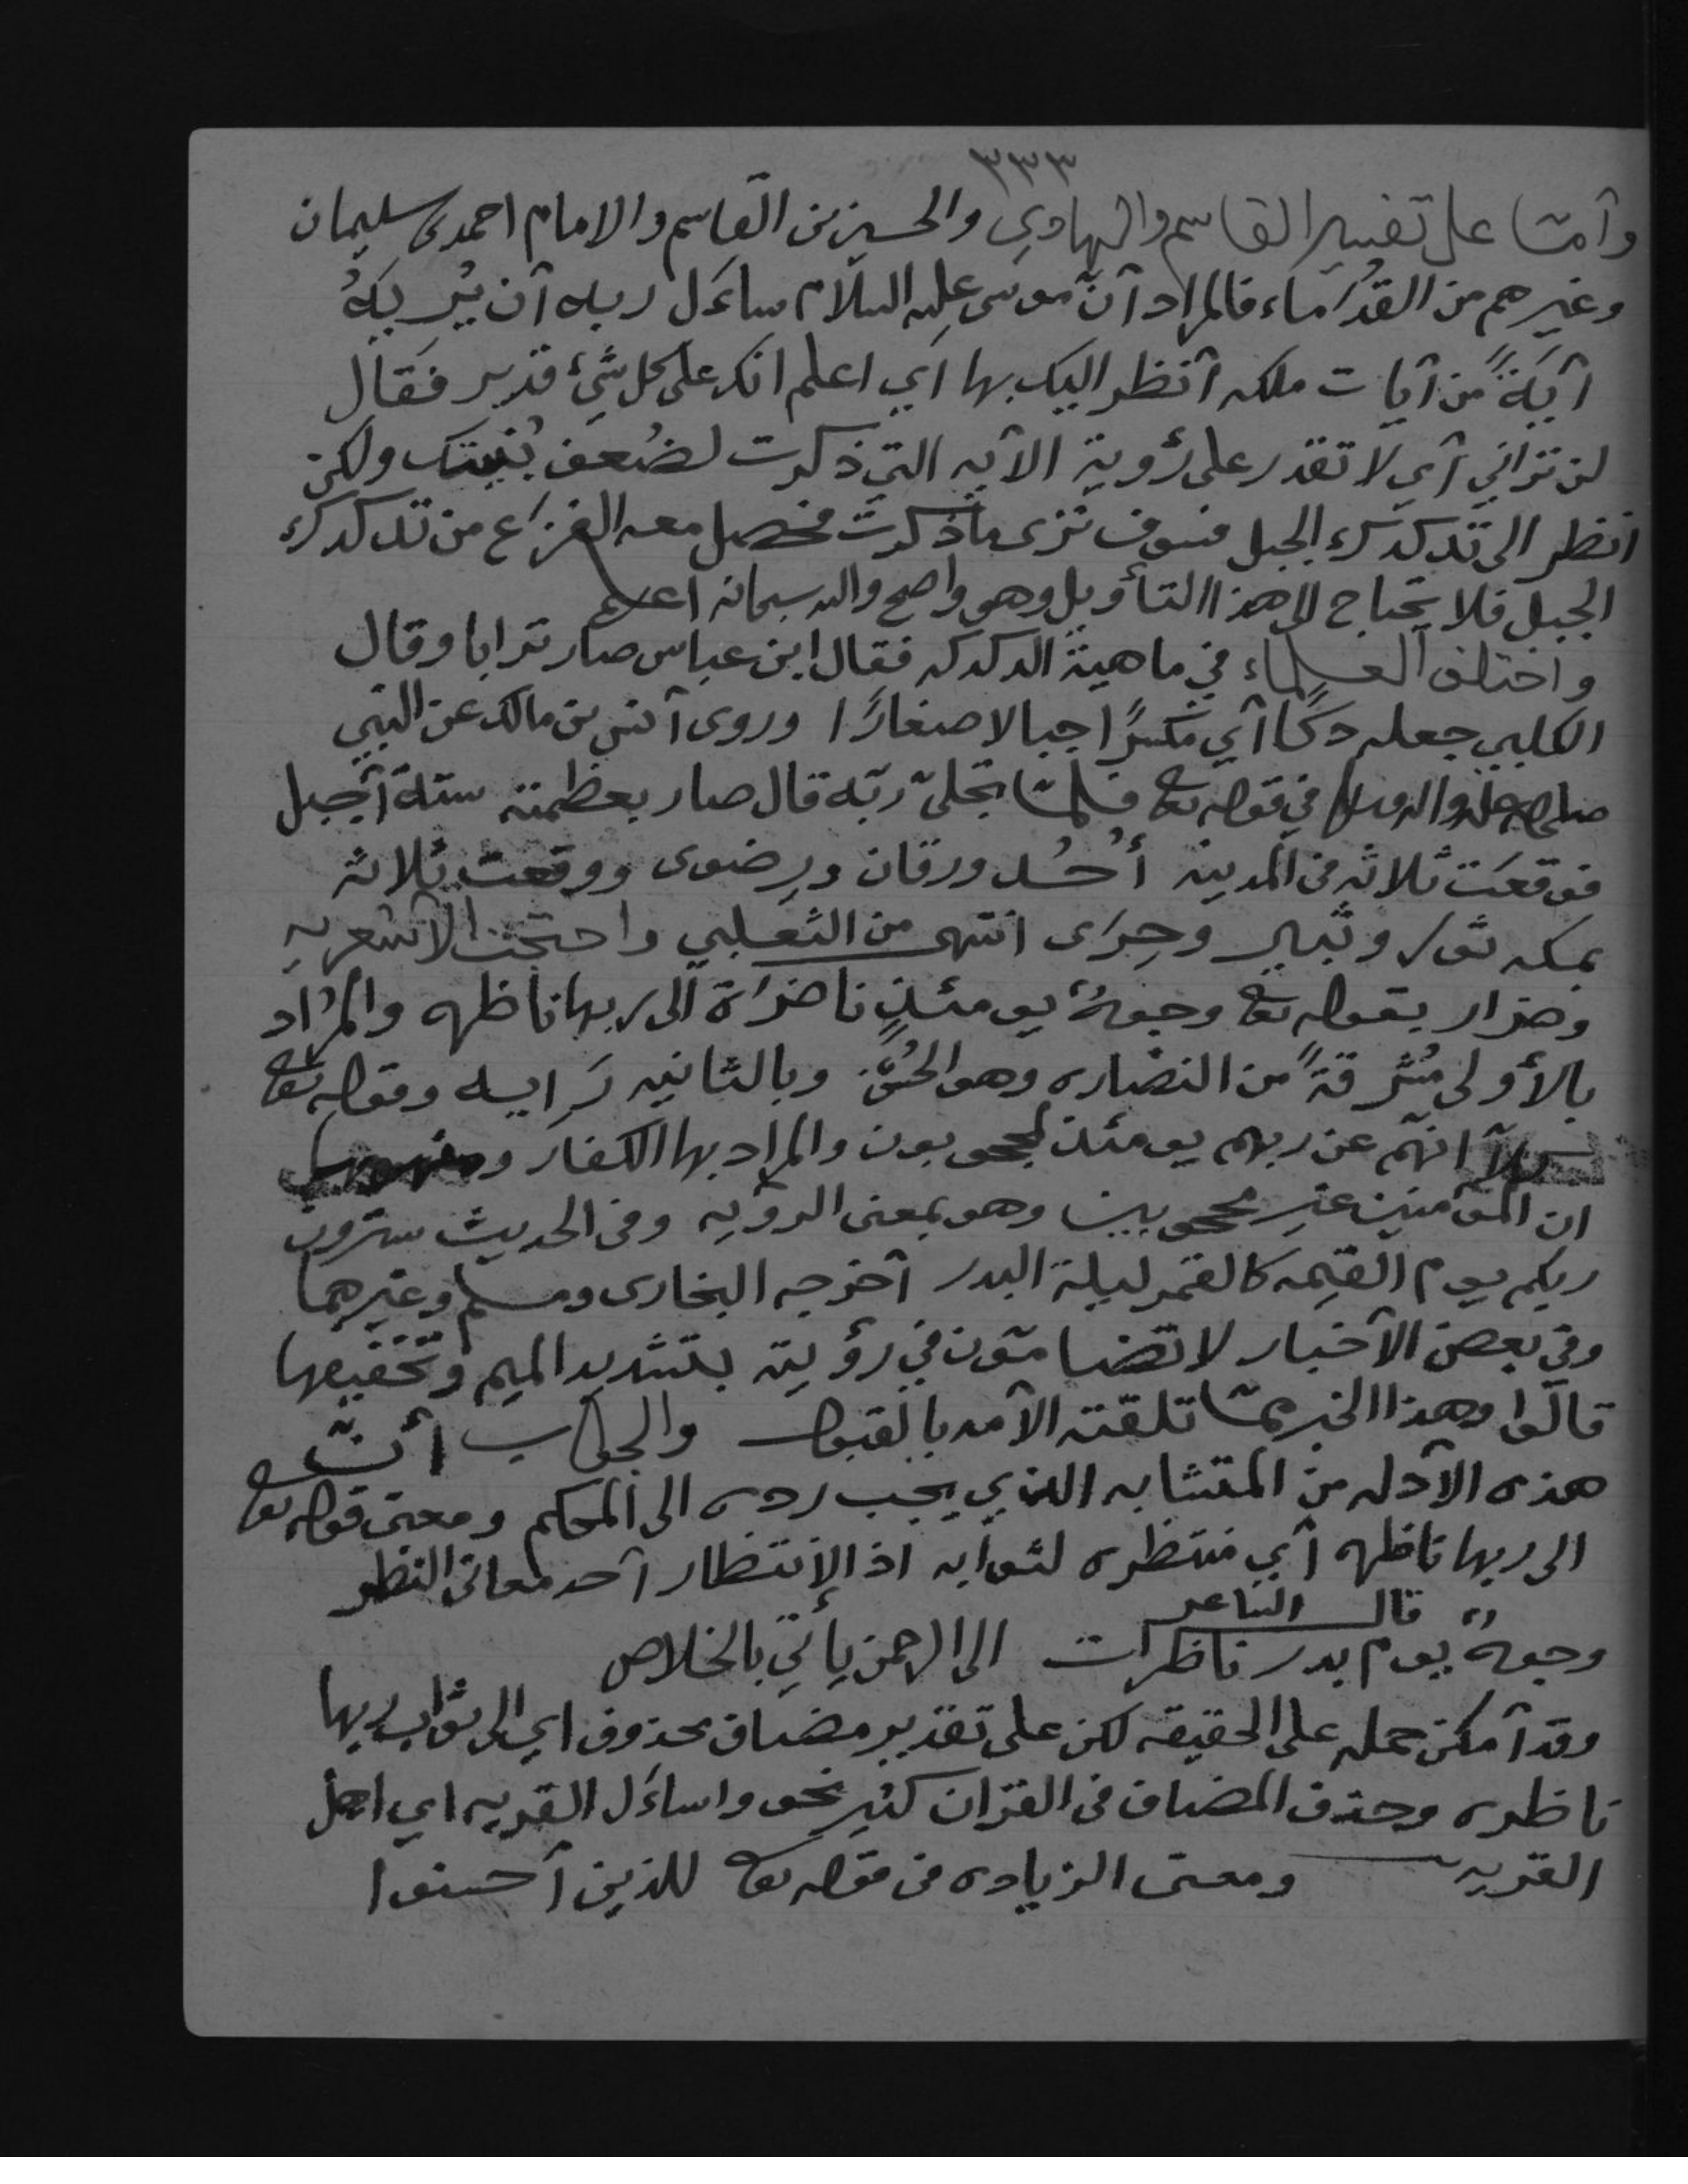 ٣٣٣
وأمّا على تفسير القاسم والهادي والحسين بن القاسم والامام احمد بن سليمان
وغيرهم من القدَماء فالمراد أنّ موسى عليه السلام ساءَل ربه أن يُريَهُ
آيَةً من آيات ملكه أنظر اليك بها أي اعلم انك على كل شيءٍ قدير فَقال
لن تراني أي لا تقدر على رُؤية الآيه التي ذكرت لضُعف بُنيتك ولكن
انظر الى تدكدك الجبل فسوف ترى ما ذكرتُ فحصل معه الفزَع من تدكدك
الجبل فلا يحتاج الى هذا التأويل وهو واضح والله سبحانه اعلم
واختلف العلماء في ماهية الدكدكه فقال ابن عباس صار ترابا وقال
الكلبي جعله دكّاً أي مكسرًا جبالا صغارًا وروى أنس بن مالك عن النبي
صلى الله عليه واله وسلم في قوله تعالى فلمّا تجلىّ ربّه قال صار بعظمته ستة أجبل
فوقعَت ثلاثه في المدينه أُحُد ورقان ورِضوى ووقعت ثلاثه
بمكه ثور وثبير وحِرَى انتهى من الثعلبي واحتجت الأشعريه
وضرار بقوله تعالى وجوهٌ يومئذٍ ناضرَة الى ربها ناظره والمرَاد
بالأولى مُشرقةً من النضاره وهو الحُسن وبالثانيه رَاييه وقوله تعالى
كلّا انهم عن ربهم يومئذ لمحجوبون والمراد بها الكفار ومفهومها
ان المؤمنين غير محجوبين وهو بمعنى الرؤيه وفي الحديث سترون
ربكم يوم القيمه كالقمر ليلة البدر أخرجه البخارى ومسلم وغيرهما
وفي بعض الأخبار لا تضامّون في رؤيته بتشديد الميم وتخفيفها
قالوا وهذا الخبر ممّا تلقته الأمه بالقبول والجواب أنّ
هذه الأدله من المتشابه الذي يجب رده الى المحكم ومعنى قوله تعالى
الى ربها ناظره أي منتظره لثوابه اذ الإنتظار أحد معاني النظر
قال الشاعر
وجوهٌ يوم بدر ناظرات الى الرحمن يأتي بالخلاص
وقد أمكن حمله على الحقيقه لكن على تقدير مضاف محذوف اي الى ثواب ربها
ناظره وحذف المضاف في القرآن كثير نحو واساءَل القريه اي اهل
القريه ومعنى الزياده في قوله تعالى للذين أحسنوا